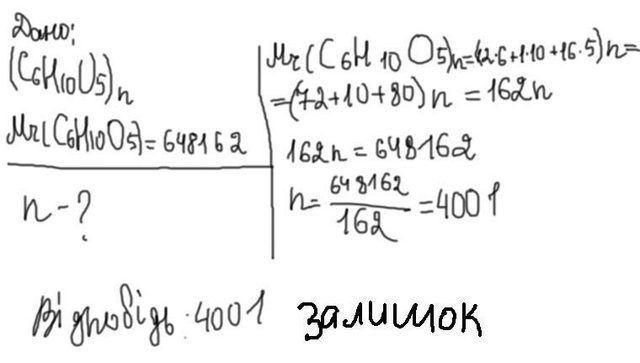 Дано:
(C6H10O5)n
Mr(C6H10O5)=648162
n-?
Mr(C6H10O5)n=(12·6+1·10+16·5)n=
=(72+10+80)n=162n
162n=648162
n=648162/162=4001
Відповідь:4001 залишок